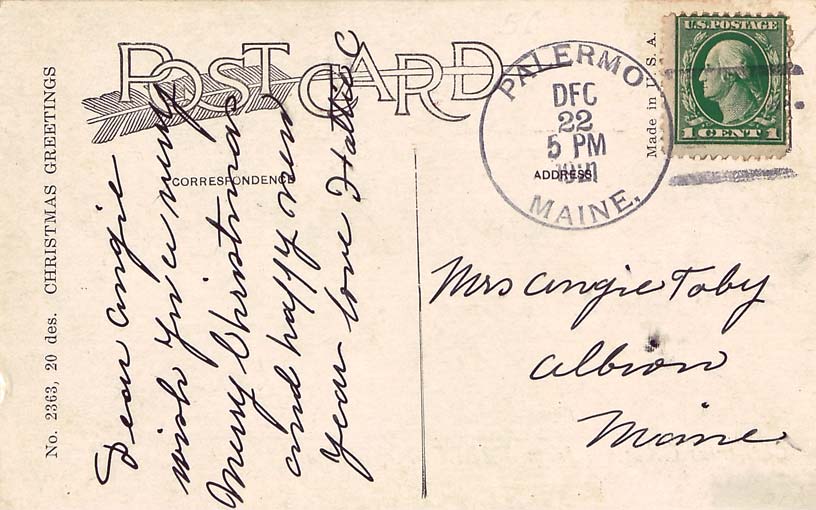 POST CARD
No. 2363, 20 des. CHRISTMAS GREETINGS
CORRESPONDENCE
Dear Angie
wish you a
Merry Christmas
and happy new
year love Hattie C
PALERMO
DEC
22
5 PM
MAINE.
ADDRESS
Made in U. S. A.
U.S. POSTAGE
1 CENT 1
Mrs Angie Toby
Albion
Maine